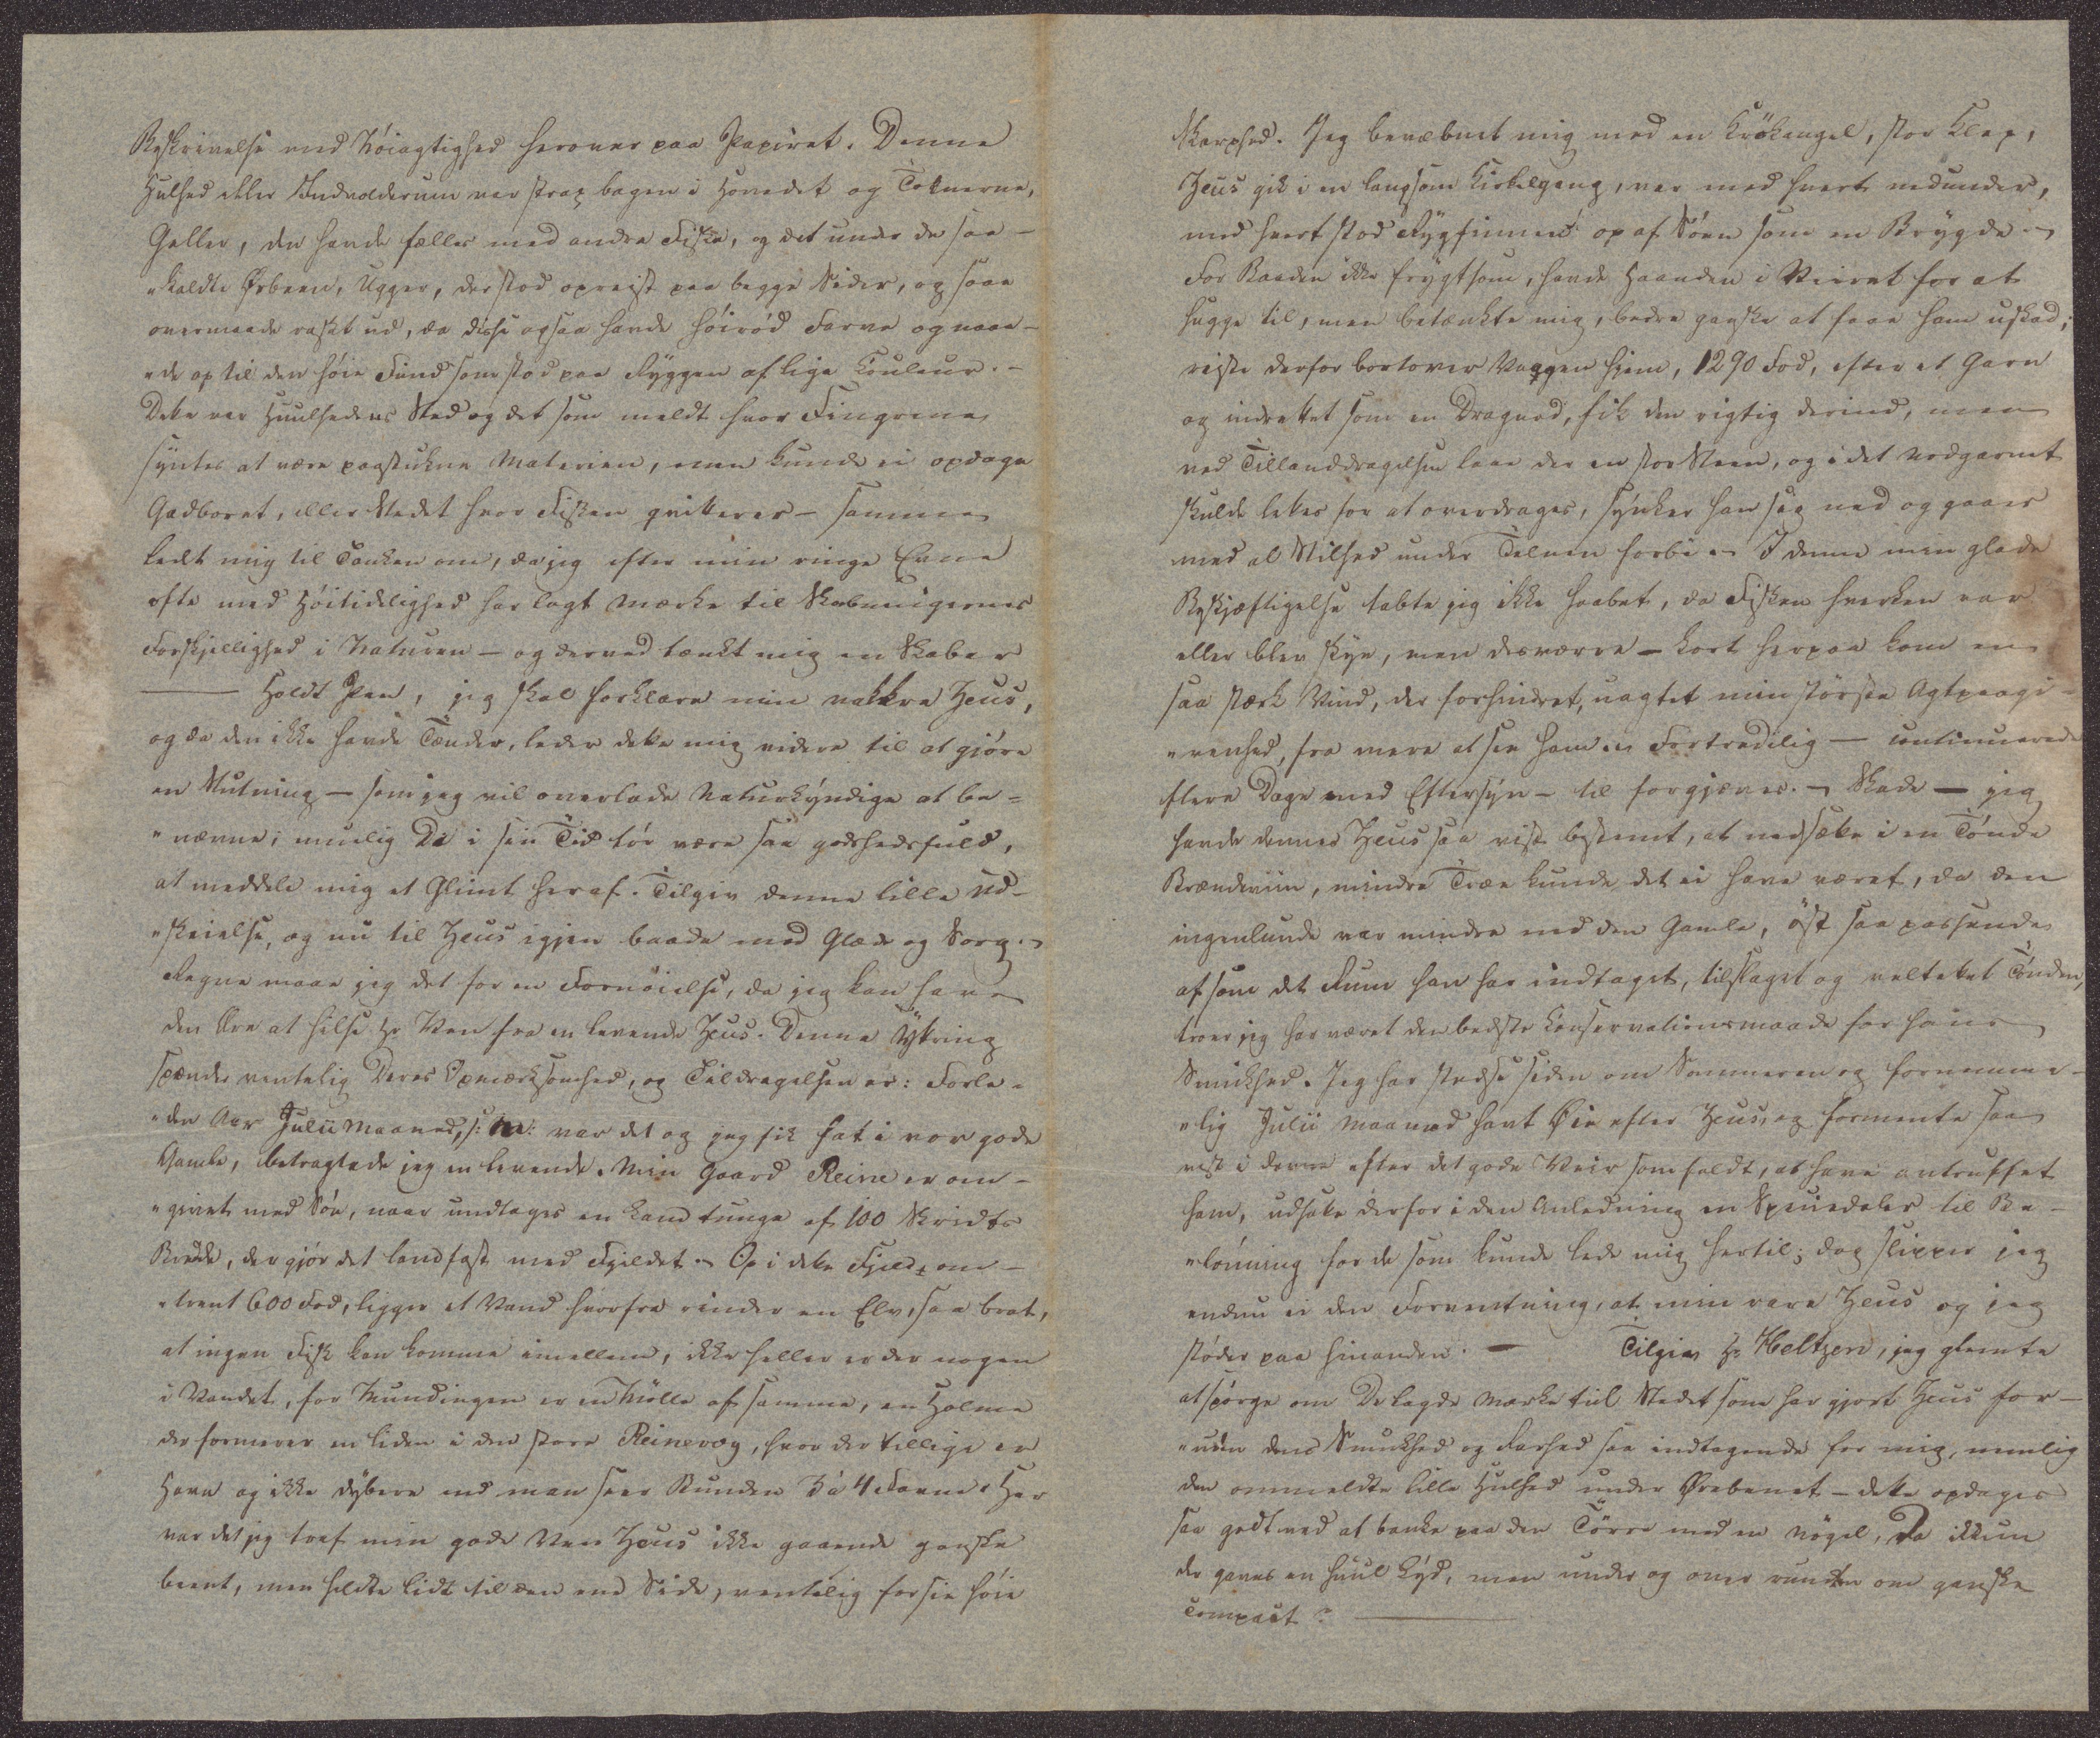 Beskrivelse med Nöiagtighed herover paa Papiret. Denne
Hulhed eller Indvolderum var strax bagen i Hovedet og Toknerne,
Geller, den havde fælles med andre Fiske, og det under de saa-
"kaldte Ørbeen, Ugger, der stod opreist paa begge Sider, og saae
overmaade raskt ud, da disse ogsaa havde höirød Farve og naae-
"de op til den höie Find som stod paa Ryggen af lige Couleur. -
Dette var Huulhedens Sted og det som meldt hvor Fingrene
syntes at være paastukne Materien, men kunde ei opdage
Gadboret, eller Stedet hvor Fisken qvitterer - samme
ledt mig til Tanken om, da jeg efter min ringe Evne
ofte med Höitidelighed har lagt Mærke til Skabningernes
Forskjellighed i Naturen - og derved tænkt mig en Skaber
— Holdt Pen, jeg skal forklare min vakkre Zeus,
og da den ikke havde Tænder, leder dette mig videre til at gjöre
en Slutning - som jeg vil overlade Naturkyndige at be-
"nævne; muelig De i sin Tid tör være saa godhedsfuld,
at meddele mig et Glimt heraf. Tilgiv denne lille Ud-
"skeielse, og nu til Zeus igjen baade med Glæde og Sorg. -
Regne maae jeg det for en Fornöielse, da jeg kan have
den Ære at hilse Hr Ven fra en levende Zeus. Denne Yttring
spænder ventelig Deres Opmærksomhed, og Tildragelsen er: Forle-
"den Aar Julii Maaned, var det og jeg fik fat i vor gode
Gamle, betragtede jeg en levende. Min Gaard Reine er om-
"givet med Söe, naar undtages en Landtunge af 100 Skridts
Brede, der gjör det landfast med Fjeldet. - Op i dette Fjeld, om-
"trent 600 Fod, ligger et Vand hvorfra rinder en Elv, saa brat,
at ingen Fisk kan komme imellem, ikke heller er der nogen
i Vandet, for Mundingen er en Mölle af samme, en Holme
der formerer en liden i den store Reinevog, hvor der tillige er
Havn og ikke dybere end man seer Bunden 3 à 4 Favne. Her
var det jeg traf min gode Ven Zeus ikke gaaende ganske
beent, men heldte lidt til den ene Side, ventelig for sin höie
Skarphed. Jeg bevæbnet mig med en Krökangel, stor Klep,
Zeus gik i en langsom Kirkelgang, var med hvert nedunder,
med hvert stod Rygfinnen op af Söen som en Brygde -
For Baaden ikke frygtsom, havde Haanden i Veiret for at
hugge til, men betænkte mig, bedre ganske at faae ham uskad;
reiste derfor bortover Vaagen hjem, 1290 Fod, efter et Garn
og indrettet som en Dragnod, fik den rigtig derind, men
ved Tillanddragelsen laae der en stor Steen, og i det Nodgarnet
skulde lettes for at overdrages, synker han sig ned og gaaer
med al Stilhed under Telnen forbi - I denne min glade
Beskjæftigelse tabte jeg ikke Haabet, da Fisken hverken var
eller blev skye, men desværre - kort herpaa kom en
saa stærk Vind, der forhindret, uagtet min störste Agtpaagi-
"venhed, fra mere at see ham - Fortredelig - continuerede
flere Dage med Eftersyn - til forgjæves. - Skade - jeg
havde denne Zeus saa vist bestemt, at nedsætte i en Tönde
Brændeviin, mindre Træe kunde det ei have været, da den
ingenlunde var mindre end den Gamle, öst saa passende
af som det Rum han har indtaget, tilslaget og veltettet Tönden,
troer jeg har været den bedste Conservationsmaade for hans
Smukhed. Jeg har stedse siden om Sommeren og fornemme-
"lig Julii Maaned havt Øie efter Zeus, og formente saa
vist i denne efter det gode Veir som faldt, at have antruffet
ham, udsatte derfor i den Anledning en Speciedaler til Be-
"lönning for de som kunde lede mig hertil; dog slipper jeg
endnu ei den Forventning, at min rare Zeus og jeg
stöder paa hinanden. — Tilgiv Hr Heltzen, jeg glemte
at spörge om De lagde Mærke til Stedet som har gjort Zeus for-
"uden dens Smukhed og Rarhed saa indtagende for mig, nemlig
den ommeldte lille Hulhed under Ørebenet - dette opdages
saa godt ved at banke paa den Törre med en Nögel, da ikkun
der gaves en huul Lyd, men under og over runden om ganske
compact? —